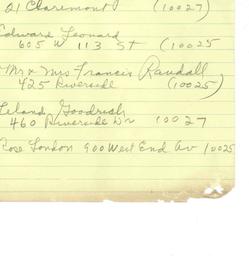 21 Claremont (10027)
Edward Leonard
605 W 113 St (10025
Mr & Mrs Francis Randall
425 Riverside (10025)
Leland Goodrich
460 Riverside Dr 10027
Rose London 900 West End Av 10025